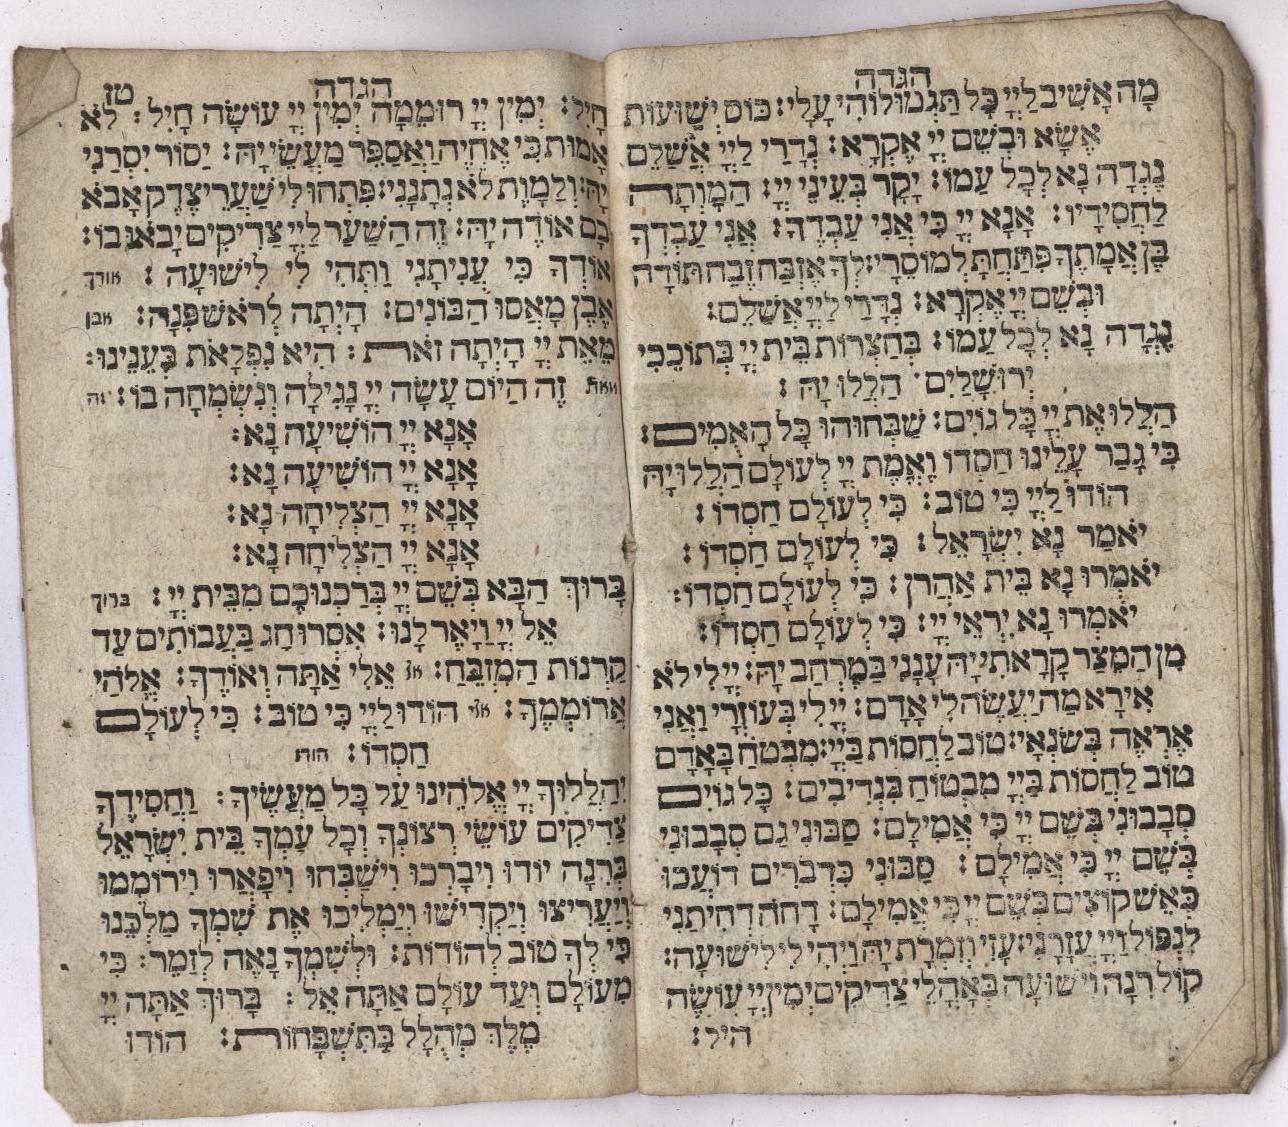 הגדה
מָה אָשִׁיב לַייָ כָּל תַּגְמוּלוֹהִי עָלָי: כּוֹס יְשׁוּעוֹת
אֶשָּׂא וּבְשֵׁם יְיָ אֶקְרָא: נְדָרַי לַייָ אֲשַׁלֵּם
נֶגְדָה נָא לְכָל עַמּוֹ: יָקָר בְּעֵינֵי יְיָ: הַמָּוְתָה
לַחֲסִידָיו: אָנָּא יְיָ כִּי אֲנִי עַבְדֶּךָ: אֲנִי עַבְדְּךָ
בֶּן אֲמָתֶךָ פִּתַּחְתָּ לְמוֹסֵרָי: לְךָ אֶזְבַּח זֶבַח תּוֹדָה
וּבְשֵׁם יְיָ אֶקְרָא: נְדָרַי לַייָ אֲשַׁלֵּם:
נֶגְדָה נָא לְכָל עַמּוֹ: בְּחַצְרוֹת בֵּית יְיָ בְּתוֹכֵכִי
יְרוּשָׁלַיִם הַלְלוּיָהּ:
הַלְלוּ אֶת יְיָ כָּל גּוֹיִם: שַׁבְּחוּהוּ כָּל הָאֻמִּים:
כִּי גָבַר עָלֵינוּ חַסְדּוֹ וֶאֱמֶת יְיָ לְעוֹלָם הַלְלוּיָהּ
הוֹדוּ לַייָ כִּי טוֹב: כִּי לְעוֹלָם חַסְדּוֹ:
יֹאמַר נָא יִשְׂרָאֵל: כִּי לְעוֹלָם חַסְדּוֹ:
יֹאמְרוּ נָא בֵּית אַהֲרֹן: כִּי לְעוֹלָם חַסְדּוֹ:
יֹאמְרוּ נָא יִרְאֵי יְיָ: כִּי לְעוֹלָם חַסְדּוֹ:
מִן הַמֵּצַר קָרָאתִי יָּהּ עָנָנִי בַמֶּרְחַב יָהּ: יְיָ לִי לֹא
אִירָא מַה יַעֲשֶׂה לִי אָדָם: יְיָ לִי בְּעוֹזְרָי וַאֲנִי
אֶרְאֶה בְשֹׂנְאָי: טוֹב לַחֲסוֹת בַּייָ: מִבְּטֹחַ בָּאָדָם
טוֹב לַחֲסוֹת בַּייָ מִבְּטוֹחַ בִּנְדִיבִים: כָּל גּוֹיִם
סְבָבוּנִי בְּשֵׁם יְיָ כִּי אֲמִילָם: סַבּוּנִי גַם סְבָבוּנִי
בְּשֵׁם יְיָ כִּי אֲמִילָם: סַבּוּנִי כִּדְבֹרִים דּוֹעֲכוּ
כְּאֵשׁ קוֹצִים בְּשֵׁם יְיָ כִּי אֲמִילָם: דָּחֹה דְחִיתַנִי
לִנְפּוֹל וַייָ עֲזָרָנִי: עָזִּי וְזִמְרָת יָהּ וַיְהִי לִי לִישׁוּעָה:
קוֹל רִנָּה וִישׁוּעָה בְּאָהֳלֵי צַדִּיקִים יְמִין יְיָ עוֹשָׂה
חיל:
הגדה
טז
חָיִל: יְמִין יְיָ רוֹמֵמָה יְמִין יְיָ עוֹשָׂה חָיִל: לֹא
אָמוּת כִּי אֶחְיֶה וַאֲסַפֵּר מַעֲשֵׂי יָהּ: יַסּוֹר יִסְּרַנִּי
יָּהּ: וְלַמָּוֶת לֹא נְתָנָנִי: פִּתְחוּ לִי שַׁעֲרֵי צֶדֶק אָבֹא
בָם אוֹדֶה יָהּ: זֶה הַשַּׁעַר לַייָ צַדִּיקִים יָבֹאוּ בוֹ:
אוֹדְךָ כִּי עֲנִיתָנִי וַתְּהִי לִי לִישׁוּעָה: אודך
אֶבֶן מָאֲסוּ הַבּוֹנִים: הָיְתָה לְרֹאשׁ פִּנָּה: אבן
מֵאֵת יְיָ הָיְתָה זֹאת: הִיא נִפְלָאת בְּעֵינֵינוּ:
מאת זֶה הַיּוֹם עָשָׂה יְיָ נָגִילָה וְנִשְׂמְחָה בוֹ: זה
אָנָּא יְיָ הוֹשִׁיעָה נָּא:
אָנָּא יְיָ הוֹשִׁיעָה נָּא:
אָנָּא יְיָ הַצְלִיחָה נָּא:
אָנָּא יְיָ הַצְלִיחָה נָּא:
בָּרוּךְ הַבָּא בְּשֵׁם יְיָ בֵּרַכְנוּכֶם מִבֵּית יְיָ: ברוך
אֵל יְיָ וַיָּאֶר לָנוּ: אִסְרוּ חַג בַּעֲבוֹתִים עַד
קַרְנוֹת הַמִּזְבֵּחַ: אל אֵלִי אַתָּה וְאוֹדֶךָּ: אֱלֹהַי
אֲרוֹמְמֶךָּ: אלי הוֹדוּ לַייָ כִּי טוֹב: כִּי לְעוֹלָם
חַסְדּוֹ: הודו
יְהַלְלוּךָ יְיָ אֱלֹהֵינוּ עַל כָּל מַעֲשֶׂיךָ: וַחֲסִידֶיךָ
צַדִּיקִים עוֹשֵׂי רְצוֹנֶךָ וְכָל עַמְּךָ בֵּית יִשְׂרָאֵל
בְּרִנָּה יוֹדוּ וִיבָרְכוּ וִישַׁבְּחוּ וִיפָאֲרוּ וִירוֹמְמוּ
וְיַעֲרִיצוּ וְיַקְדִּישׁוּ וְיַמְלִיכוּ אֶת שִׁמְךָ מַלְכֵּנוּ
כִּי לְךָ טוֹב לְהוֹדוֹת: וּלְשִׁמְךָ נָאֶה לְזַמֵּר: כִּי
מֵעוֹלָם וְעַד עוֹלָם אַתָּה אֵל: בָּרוּךְ אַתָּה יְיָ
מֶלֶךְ מְהֻלָּל בַּתִּשְׁבָּחוֹת: הודו